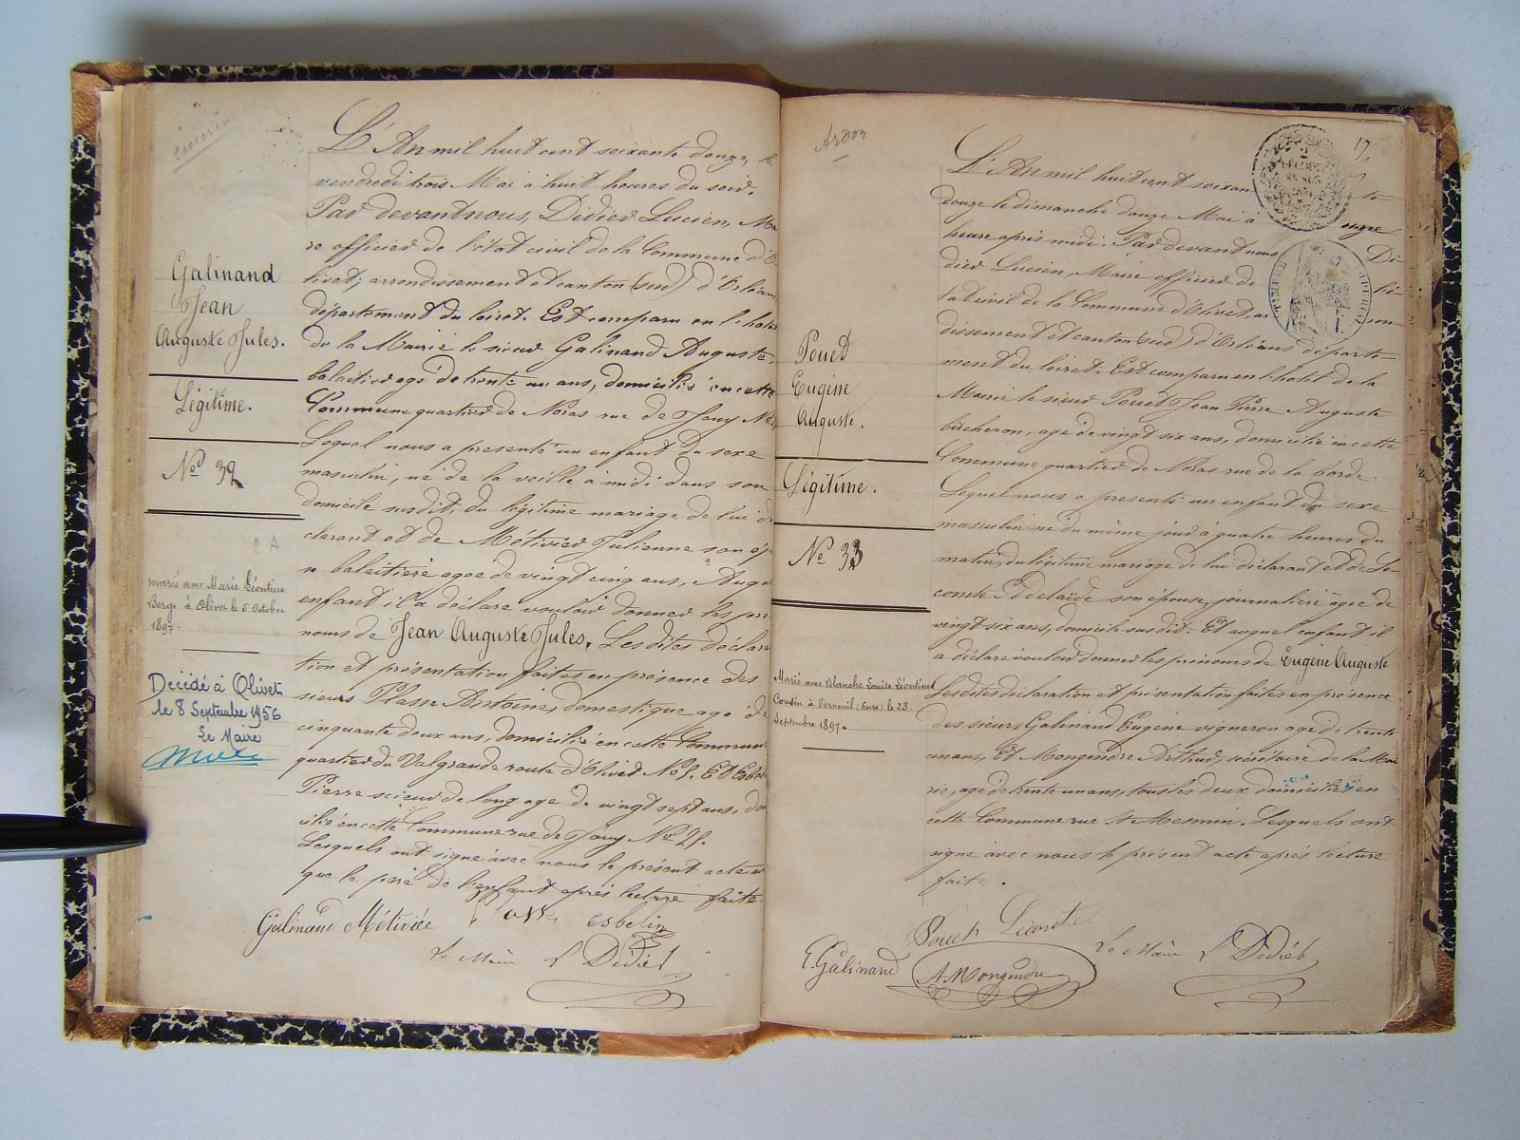 Galinand
Jean
Auguste Jules.
Légitime.
No 32
marié avec Marie Léontine
Berge à Olivet le 5 Octobre
1897.
Décédé à Olivet
le 8 Septembre 1956
Le Maire
L'An mil huit cent soixante douze, le
vendredi trois Mai à huit heures du soir.
Par devant nous, Didier Lucien, Mai
re officier de l'état civil de la Commune d'O
livet, arrondissement et canton (sud) d'Orléans
département du loiret. Est comparu en l'hotel
de la Mairie le sieur Galinand Auguste
balaitier agé de trente un ans, domicilié en cette
Commune quartier de Noras rue de
Lequel nous a presenté un enfant du sexe
masculin, né de la veille à midi dans son
domicile susdit, du légitime mariage de lui dé
clarant et de Métivier Julienne son ép
balaitière agée de vingt cinq ans, Auqu
enfant il a déclaré vouloir donner les pré
noms de Jean Auguste Jules. Les dites déclara
tion et présentation faites en présence des
sieurs Plasse Antoine, domestique agé de
cinquante deux ans, domicilié en cette Commune
quartier du Val grande route d'Olivet No 5. Et Esbelin
Pierre scieur de long agé de vingt sept ans, do
cilié en cette Commune rue de No 25.
Lesquels ont signé avec nous le présent acte
que le père de l'enfant après lecture faite
Galinand Métivier esbelin
Le Maire L Didier
Ardon
17
Pouet
Eugène
Auguste.
Légitime.
No 33
Marié avec Blanche Louise Léontine
Cousin à Verneuil (Eure) le 28
Septembre 1897.
L'An mil huit cent soixante
douze le dimanche douze Mai à onze
heure après midi. Par devant nous Di
dier Lucien, Maire officier de l'é
tat civil de la Commune d'Olivet arron
dissement et canton (sud) d'Orléans départe
ment du loiret. Est comparu en l'hotel de la
Mairie le sieur Pouet Jean Pierre Auguste
bûcheron, agé de vingt six ans, domicilié en cette
Commune quartier de Noras rue de la borde.
Lequel nous a presenté un enfant du sexe
masculin né du même jour à quatre heures du
matin, du légitime mariage de lui déclarant et de Le
comte Edelaïde son épouse, journalière agée de
vingt six ans, domicile susdit. Et auquel enfant il
a déclaré vouloir donner les prénoms de Eugène Auguste
Lesdites déclaration et présentation faites en présence
des sieurs Galinand Eugène vigneron agé de trente
un ans, Et Mongendre Arthur, secrétaire de la Mai
rie, agé de trente un ans, tous les deux domiciliés en
cette Commune rue St Mesmin. Lesquels ont
signé avec nous le présent acte après lecture
faite.
Pouet Lecomte
E. Galinand A. Mongendre Le Maire L Didier